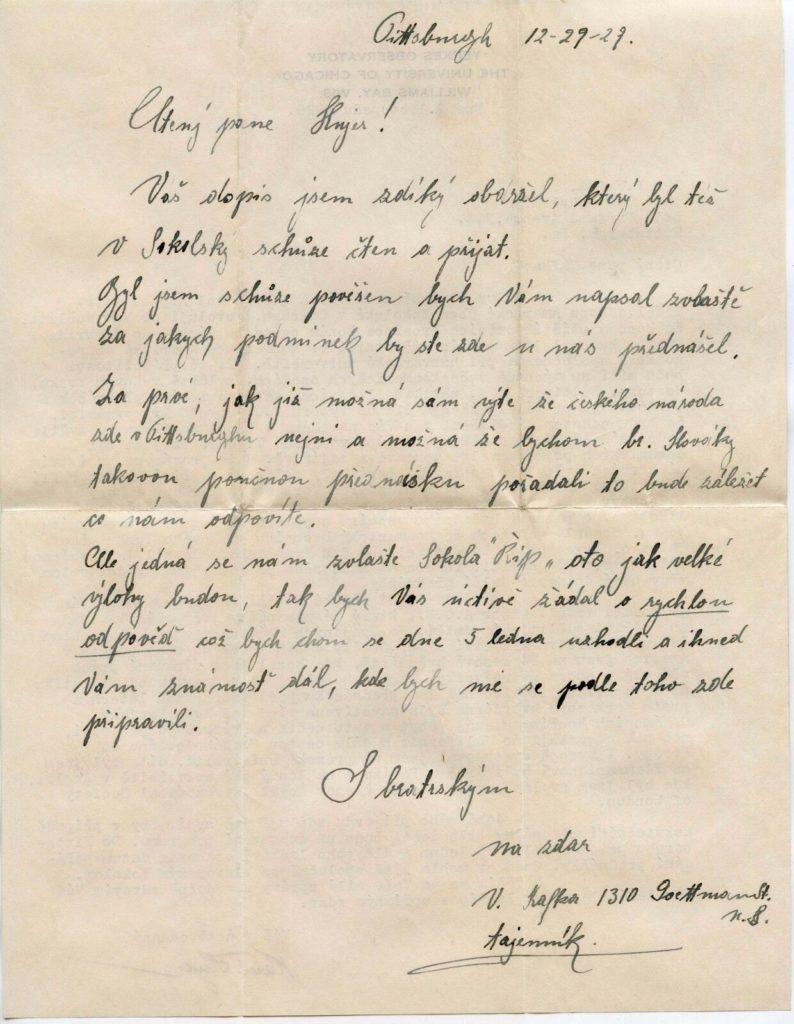 Pittsburgh 12-29-27.
YERKES OBSERVATORY
THE UNIVERSITY OF CHICAGO
WILLIAMS BAY, WIS.
Ctený pane Hujer!
Vaš dopis jsem zdíký obaržel, který byl též
v Sokolský schůze čten a přijat.
Byl jsem schůze pověšen bych Vám napsal zvlaště
za jakych podmínek by ste zde u nás přednášel.
Za prvé, jak již možná sám výte že českého národa
zde v Pittsburghu nejni a možná že bychom br. Slováky
takovou poučnou přednášku pořadali to bude záležet
co nám odpovíte.
Ale jedná se nám zvlašte Sokola "Řip" oto jak velké
výlohy budou, tak bych Vás úctivě žádal o rychlou
odpověď což bych chom se dne 5 ledna uzhodli a ihned
Vám známosť dál, kde bych mé se podle toho zde
připravili.
S bratrským
na zdar
V. Kafka 1310 Goettman St.
N.S.
tajemník.